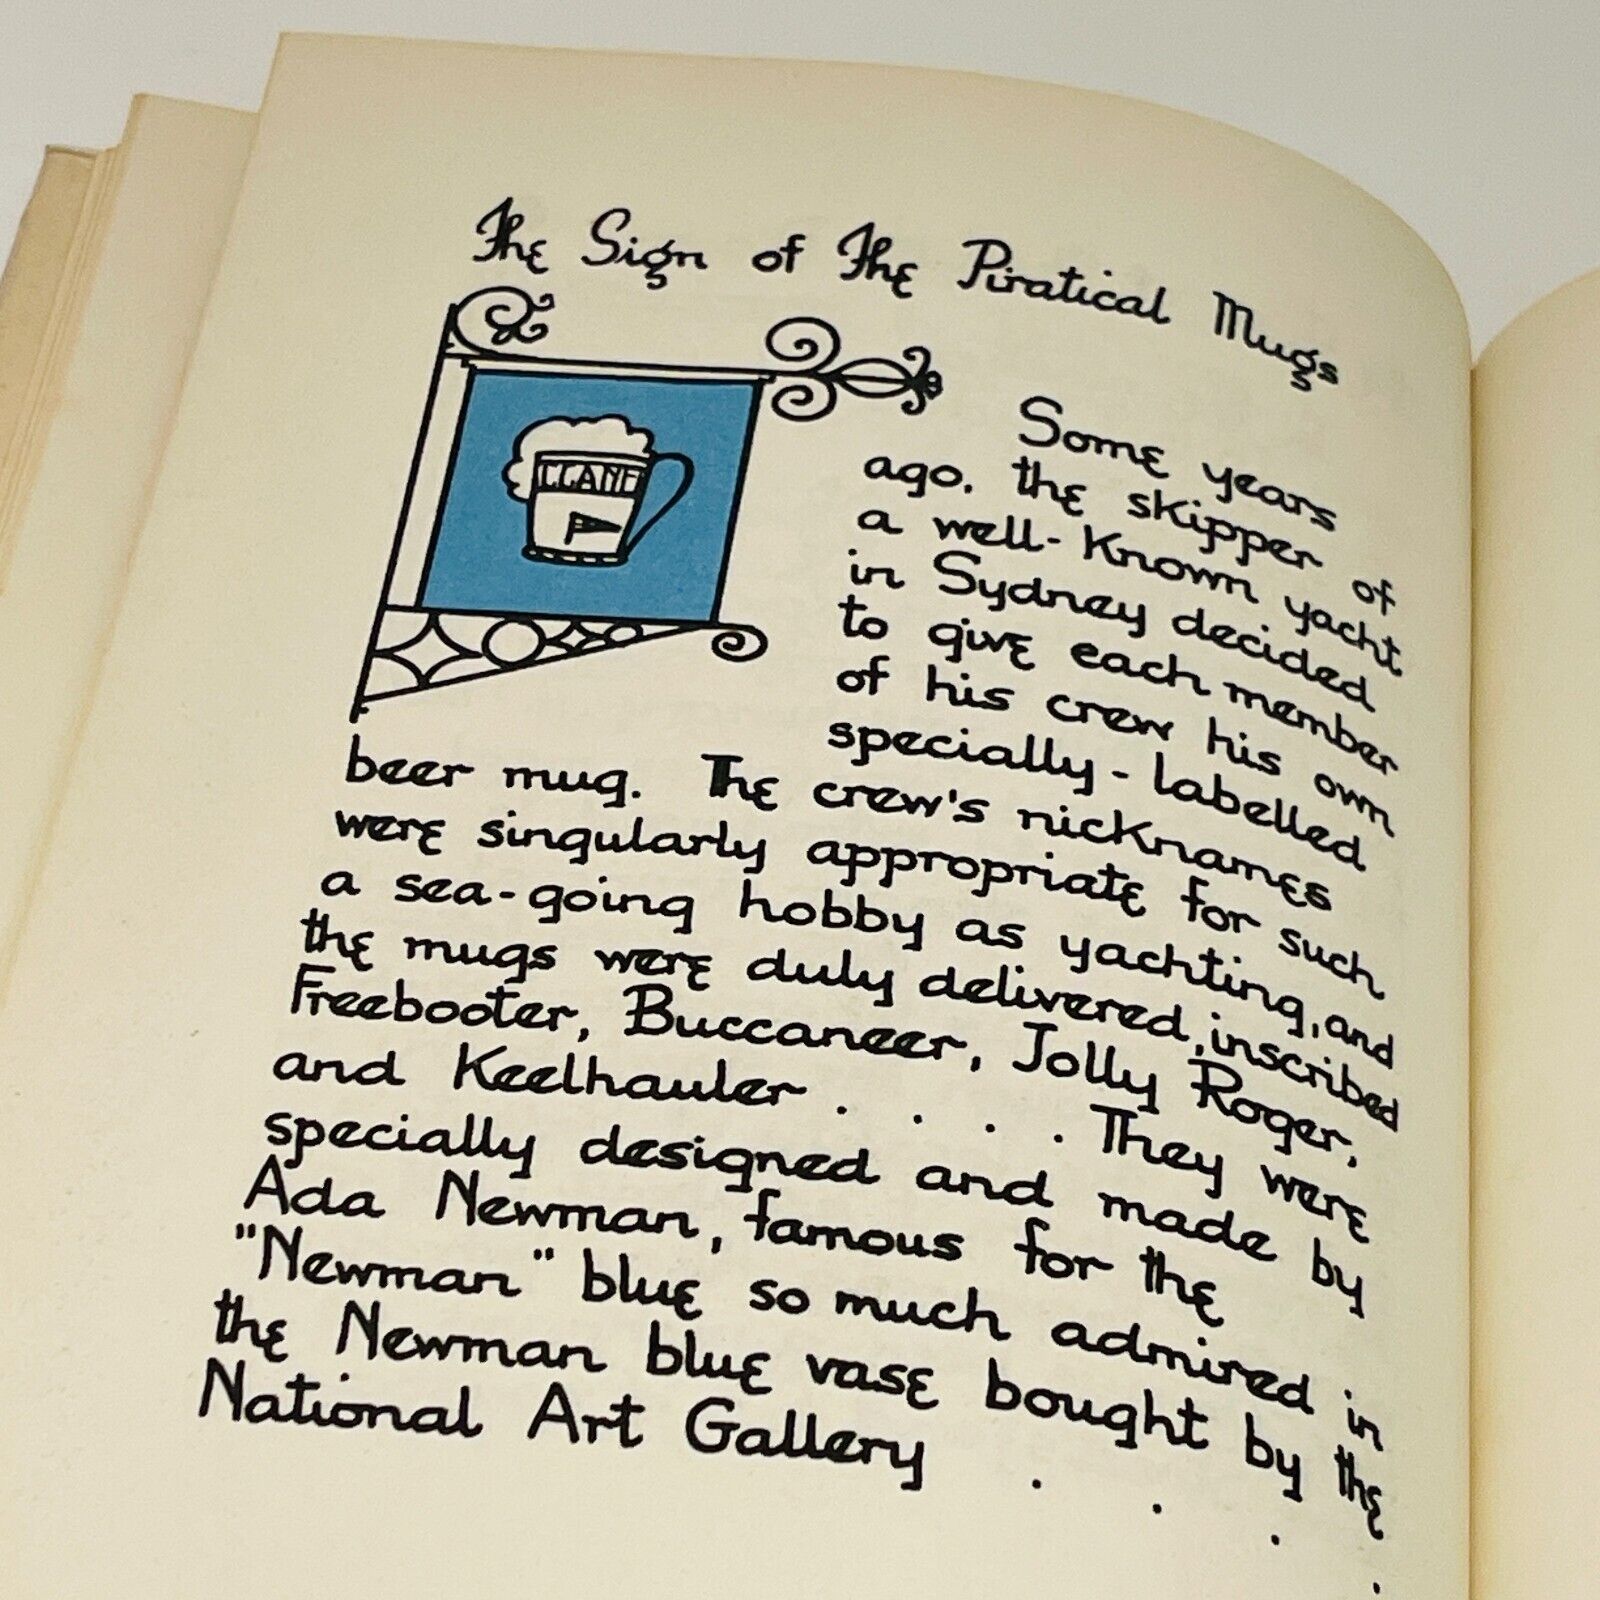 The Sign of The Piratical Mugs
CCANE
Some years
ago, the skipper of
a well-known yacht
in Sydney decided
to give each member
of his crew his own
specially-labelled
beer mug. The crew's nicknames
were singularly appropriate for such
a sea-going hobby as yachting, and
the mugs were duly delivered, inscribed
Freebooter, Buccaneer, Jolly Roger,
and Keelhauler . . . . They were
specially designed and made by
Ada Newman, famous for the
"Newman" blue so much admired in
the Newman blue vase bought by the
National Art Gallery . . . .